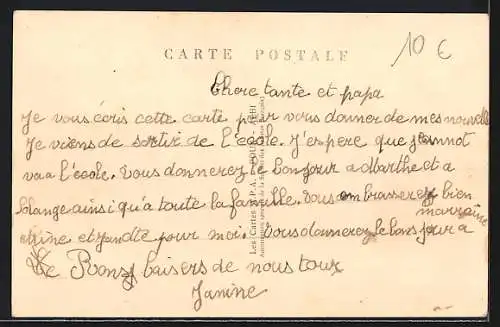 CARTE POSTALE
10 €
Chere tante et papa
Je vous écris cette carte pour vous donner de mes nouvelles
Je viens de sortir de l'école. J'espere que jeannot
va a l'école. Vous donnerez le bonjour a Marthe et a
blange ainsi qu'a toute la famille. Vous embrasserez bien
marraine
et pour moi. Vous donnerez le bonjour a
Bons baisers de nous tous
Janine
Les Cartes A.P.A. - POUX - ALBI